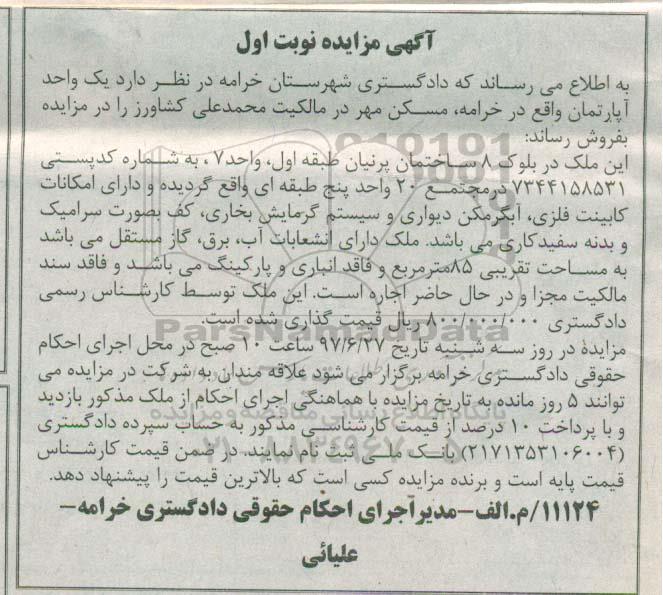 آگهی مزایده نوبت اول
به اطلاع می رساند که دادگستری شهرستان خرامه در نظر دارد یک واحد
آپارتمان واقع در خرامه، مسکن مهر در مالکیت محمدعلی کشاورز را در مزایده
بفروش رساند:
این ملک در بلوک ۸ ساختمان پرنیان طبقه اول، واحد۷ ، به شماره کدپستی
۷۳۴۴۱۵۸۵۳۱ درمجتمع ۲۰ واحد پنج طبقه ای واقع گردیده و دارای امکانات
کابینت فلزی، آبگرمکن دیواری و سیستم گرمایش بخاری، کف بصورت سرامیک
و بدنه سفیدکاری می باشد. ملک دارای انشعابات آب، برق، گاز مستقل می باشد
به مساحت تقریبی ۸۵مترمربع و فاقد انباری و پارکینگ می باشد و فاقد سند
مالکیت مجزا و در حال حاضر اجاره است. این ملک توسط کارشناس رسمی
دادگستری ۸۰۰/۰۰۰/۰۰۰ ریال قیمت گذاری شده است.
ParsNamadData
مزایده در روز سه شنبه تاریخ ۹۷/۶/۲۷ ساعت ۱۰ صبح در محل اجرای احکام
حقوقی دادگستری خرامه برگزار می شود علاقه مندان به شرکت در مزایده می
توانند ۵ روز مانده به تاریخ مزایده با هماهنگی اجرای احکام از ملک مذکور بازدید
و با پرداخت ۱۰ درصد از قیمت کارشناسی مذکور به حساب سپرده دادگستری
(۲۱۷۱۳۵۳۱۰۶۰۰۴) بانک ملی ثبت نام نمایند. در ضمن قیمت کارشناس
قیمت پایه است و برنده مزایده کسی است که بالاترین قیمت را پیشنهاد دهد.
۱۱۱۲۴/م.الف-مدیراجرای احکام حقوقی دادگستری خرامه-
علیائی